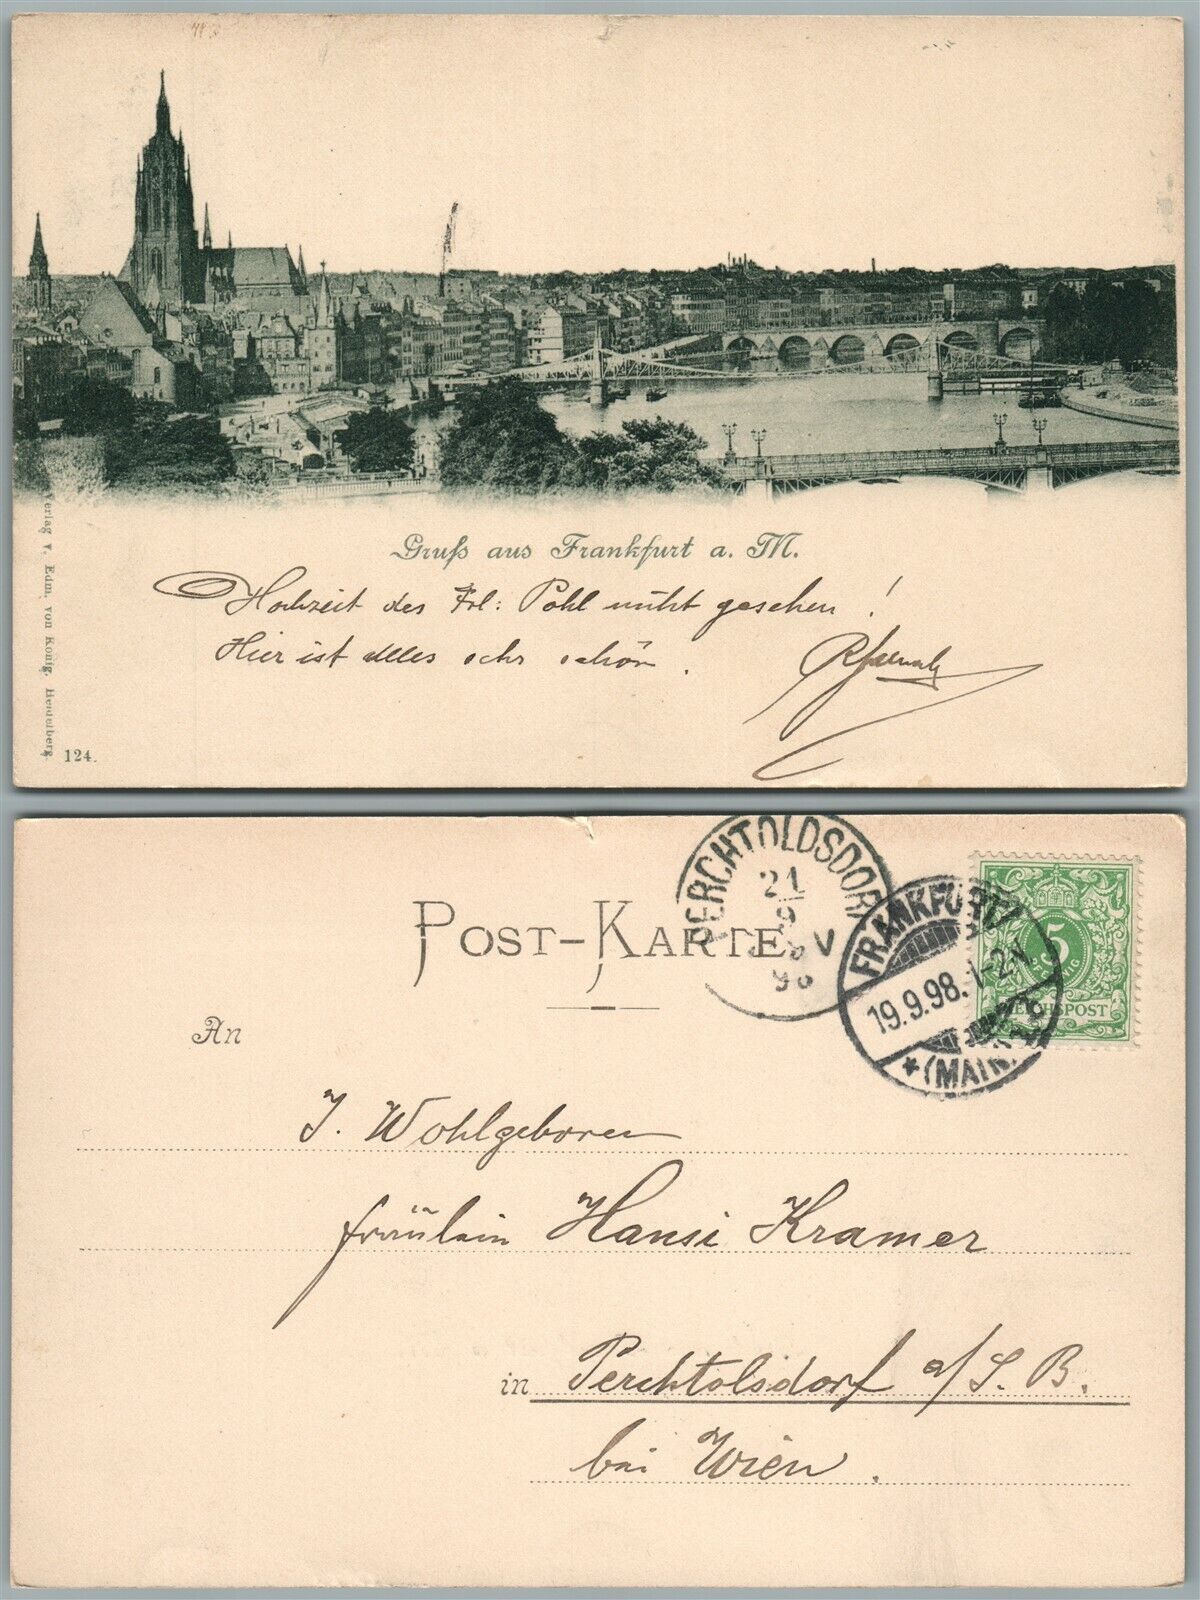 Gruß aus Frankfurt a. M.
Hochzeit des Frl: Pohl nicht gesehen!
Hier ist alles sehr schön.
Verlag v. Edm. von König, Heidelberg
124.
PERCHTOLDSDORF
21
9
V
98
FRANKFURT
19.9.98. 1-2N.
* (MAIN)
5
PFENNIG
REICHSPOST
POST-KARTE
An
I. Wohlgeboren
Fräulein Hansi Kramer
in Perchtolsdorf a/S. B.
bei Wien.